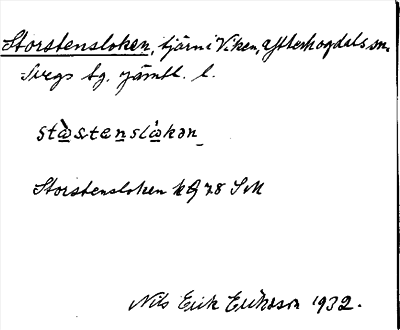 Storstensloken, tjärn i Viken, Ytterhogdals sn.
Svegs tg. Jämtl. l.
stɷ̀stenslɷ̀kən
Storstensloken kG 78 SM
Nils Erik Eriksson 1932.